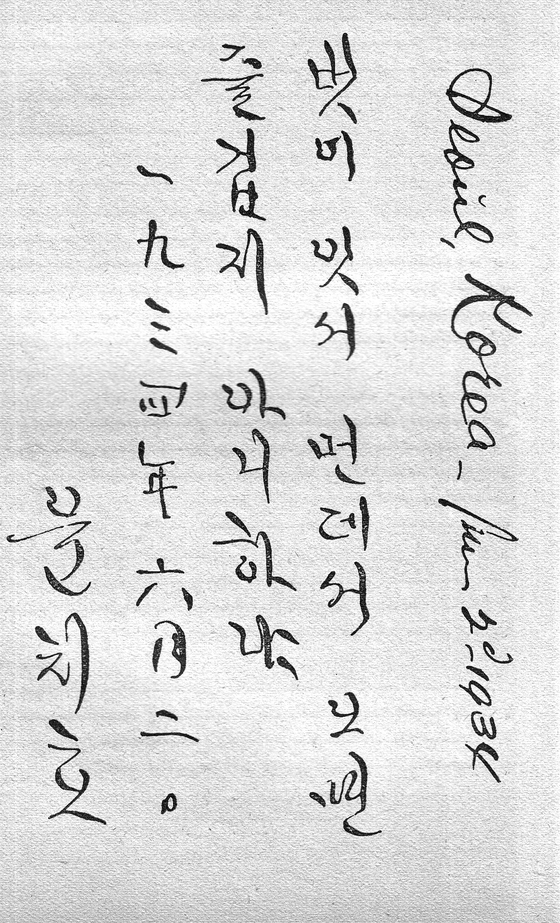 Seoul, Korea - June 2d-1934
벗이 잇서 먼데서 오면
즐겁지 아니한가
一九三四年六月二日
윤치호